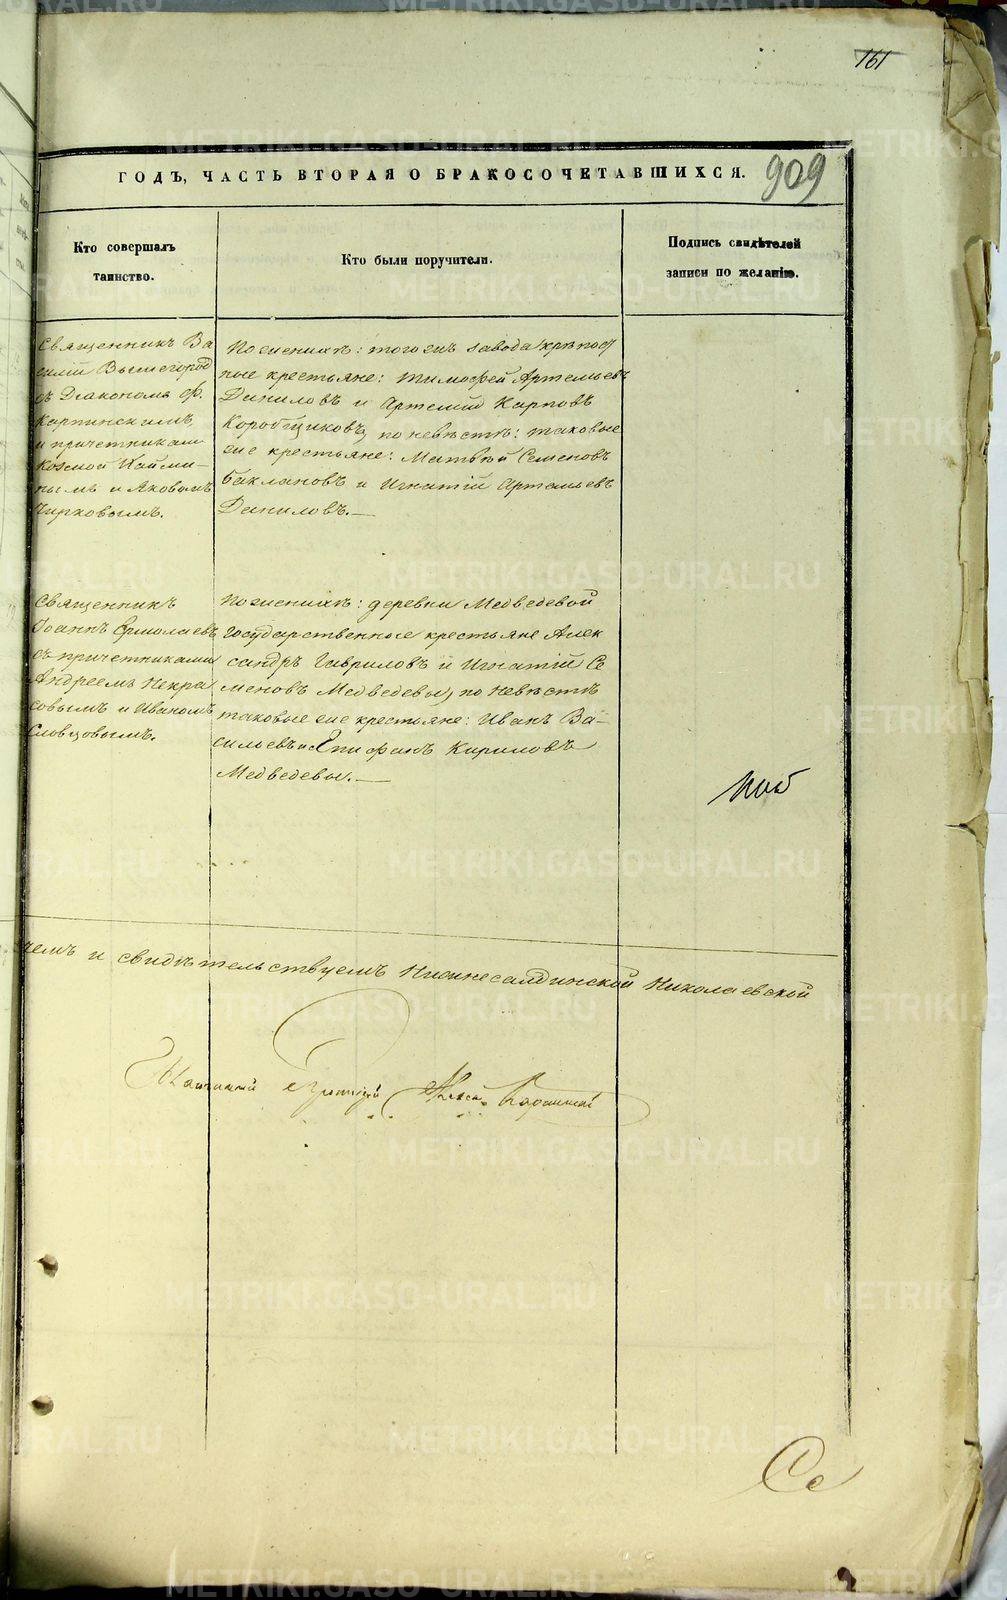 161
ГОДЪ, ЧАСТЬ ВТОРАЯ О БРАКОСОЧЕТАВШИХСЯ.
909
Кто совершалъ
таинство.
Кто были поручители.
Подпись свидѣтелей
записи по желанію.
Священникъ Ва
силій Вышегород
съ Діакономъ
Карпинскимъ,
и причетниками
Козмой Наими-
нымъ и Яковомъ
Чирковымъ.
По женихѣ: того же завода крѣпост
ные крестьяне: Тимофей Артемьевъ
Даниловъ и Артемій Карповъ
Коробщиковъ, по невѣстѣ: таковые
же крестьяне: Матвѣй Семеновъ
Баклановъ и Игнатій Артемьевъ
Даниловъ.—
Священникъ
Іоаннъ Ермолаевъ
съ причетниками
Андреемъ Некра
совымъ и Иваномъ
Словцовымъ.
По женихѣ: деревни Медведевой
государственные крестьяне Алек
сандръ Гавриловъ и Игнатій Се
меновъ Медведевы, по невѣстѣ
таковые же крестьяне: Иванъ Ва-
сильевъ и Епифанъ Кириловъ
Медведевы.—
чемъ и свидѣтельствуемъ Нижнесалдинской Николаевской
METRIKI.GASO-URAL.RU